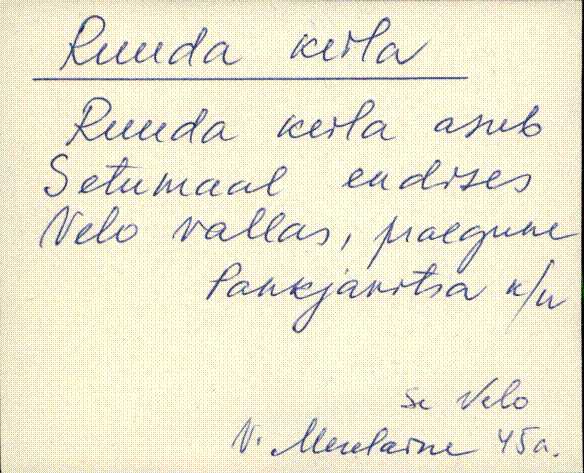 Ruuda keila
Ruuda keila asub
Setumaal endises
Velo vallas, praegune
Pankjavitsa k/n
se Velo
V. Merelaine 45a.